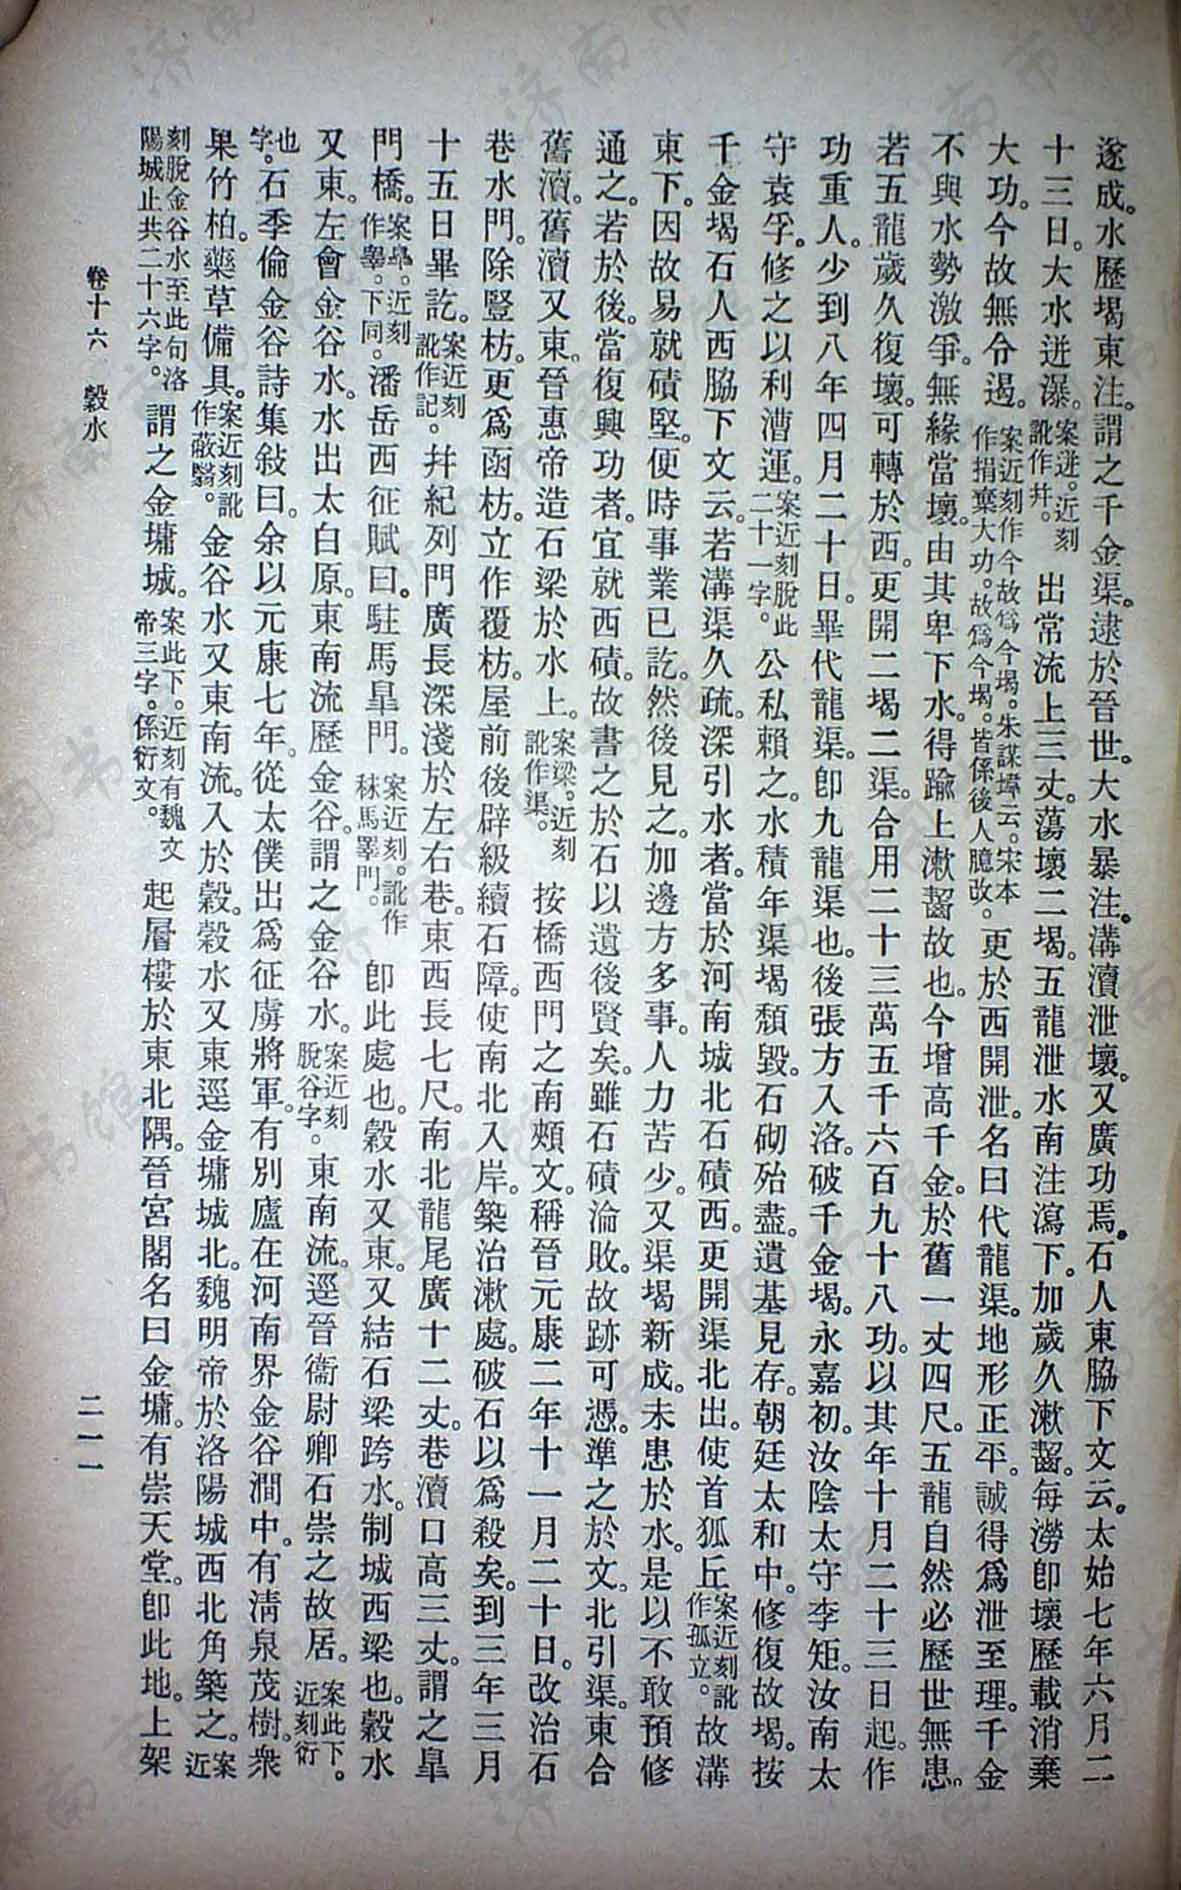 遂成。水歷堨東注。謂之千金渠。逮於晉世。大水暴注。溝瀆泄壞。又廣功焉。石人東脇下文云。太始七年六月二
十三日。大水迸瀑。案迸。近刻訛作井。出常流上三丈。蕩壞二堨。五龍泄水南注瀉下。加歲久漱齧。每澇卽壞。歷載消棄
大功。今故無令遏。案近刻作今故爲今堨。朱謀㙔云。宋本作捐棄大功。故爲今堨。皆係後人臆改。更於西開泄。名曰代龍渠。地形正平。誠得爲泄至理。千金
不與水勢激爭。無緣當壞。由其卑下。水得踰上漱齧故也。今增高千金。於舊一丈四尺。五龍自然必歷世無患。
若五龍歲久復壞。可轉於西。更開二堨二渠。合用二十三萬五千六百九十八功。以其年十月二十三日起。作
功重人。少到八年四月二十日。畢代龍渠。卽九龍渠也。後張方入洛。破千金堨。永嘉初。汝陰太守李矩。汝南太
守袁孚。修之以利漕運。案近刻脫此二十一字。公私賴之。水積年。渠堨頹毀。石砌殆盡。遺基見存。朝廷太和中。修復故堨。按
千金堨石人西脇下文云。若溝渠久疏。深引水者。當於河南城北石磧西。更開渠北出。使首狐丘。案近刻訛作孤立。故溝
東下。因故易就磧堅。便時事業已訖。然後見之。加邊方多事。人力苦少。又渠堨新成。未患於水。是以不敢預修
通之。若於後。當復興功者。宜就西磧。故書之於石。以遺後賢矣。雖石磧淪敗。故跡可憑。準之於文。北引渠。東合
舊瀆。舊瀆又東。晉惠帝造石梁於水上。案梁。近刻訛作渠。按橋西門之南頰文。稱晉元康二年十一月二十日。改治石
巷水門。除豎枋。更爲函枋。立作覆枋。屋前後辟級續石障。使南北入岸。築治漱處。破石以爲殺矣。到三年三月
十五日畢訖。案近刻訛作記。幷紀列門廣長深淺於左右巷。東西長七尺。南北龍尾廣十二丈。巷瀆口高三丈。謂之臯
門橋。案臯。近刻作睾。下同。潘岳西征賦曰。駐馬臯門。案近刻。訛作秣馬睪門。卽此處也。穀水又東。又結石梁跨水。制城西梁也。穀水
又東。左會金谷水。水出太白原。東南流歷金谷。謂之金谷水。案近刻脫谷字。東南流。逕晉衞尉卿石崇之故居。案此下。近刻衍
也字。石季倫金谷詩集敍曰。余以元康七年。從太僕出爲征虜將軍。有別廬在河南界金谷澗中。有淸泉茂樹。衆
果竹柏。藥草備具。案近刻訛作蔽翳。金谷水又東南流。入於穀。穀水又東。逕金墉城北。魏明帝於洛陽城西北角築之。案近
刻脫金谷水至此句洛陽城止共二十六字。謂之金墉城。案此下。近刻有魏文帝三字。係衍文。起層樓於東北隅。晉宮閣名曰金墉。有崇天堂。卽此地。上架
卷十六 穀水
二一一